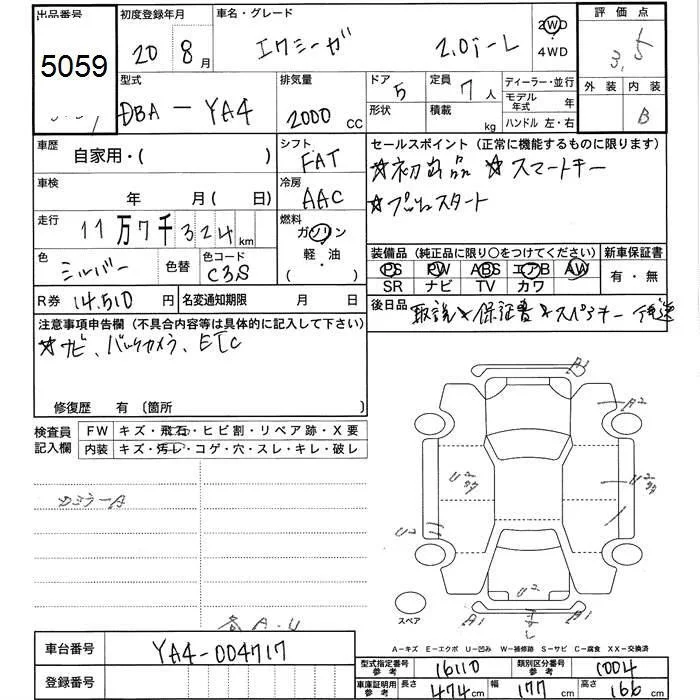 出品番号 初度登録年月 車名・グレード 2WD 4WD 評価点
5059 20 8月 エクシーガ 2.0i-L 3.5
型式 排気量 ドア 定員 ディーラー・並行 外装 内装
DBA-YA4 2000cc 5 7人 モデル年式 年 B
形状 積載 kg ハンドル 左・右
車歴 自家用・( ) シフト FAT セールスポイント(正常に機能するものに限ります)
☆初出品 ☆スマートキー
車検 年 月(日) 冷房 AAC
☆プッシュスタート
走行 11万7千324km 燃料 ガソリン 軽・油 ( )
装備品(純正品に限り○をつけてください) 新車保証書
色 シルバー 色替 色コード C3S
PS PW ABS エアB AW 有・無
SR ナビ TV カワ
R券 14,510円 名変通知期限 月 日
後日品 取説 保証書 スペアキー
注意事項申告欄(不具合内容等は具体的に記入して下さい)
☆ナビ、バックカメラ、ETC
修復歴 有〔箇所 〕
検査員記入欄 FW キズ・飛石・ヒビ割・リペア跡・X要
内装 キズ・汚レ・コゲ・穴・スレ・キレ・破レ
A1
A2
U2
U2
A1 A1
スペア
A-キズ E-エクボ U-凹み W-補修跡 S-サビ C-腐食 XX-交換済
各A.U
車台番号 YA4-004717
登録番号
型式指定番号 参考 16110 類別区分番号 参考 1004
車庫証明用 参考 長さ 474cm 幅 177cm 高さ 166cm